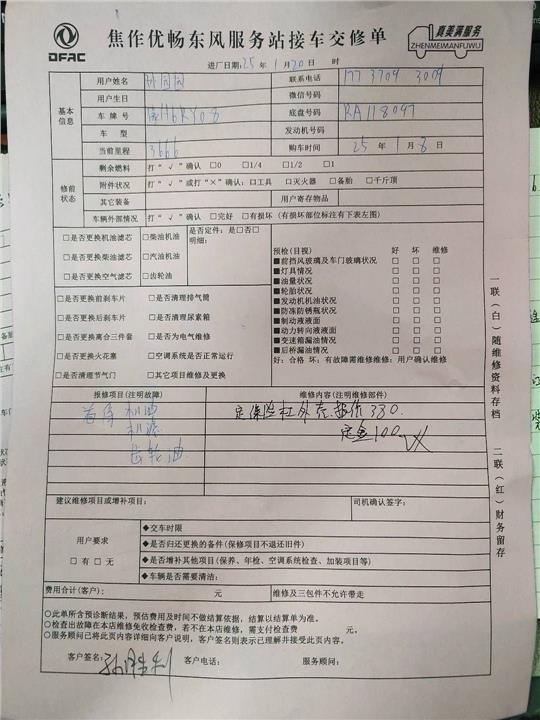 DFAC
焦作优畅东风服务站接车交修单
真美满服务
ZHENMEIMANFUWU
进厂日期:25年1月20日 时
基本信息
用户姓名 联系电话 177 3709 3009
用户生日 微信号码
车牌号 底盘号码 RA118097
车型 发动机号码
当前里程 3666 购车时间 25年1月8日
修前状态
剩余燃料 打“√”确认 □0 □1/4 □1/2 □1
附件状况 打“√”或打“×”确认:□工具 □灭火器 □备胎 □千斤顶
其它装备 用户寄存物品
车辆外部情况 打“√”确认 □完好 □有损坏(有损坏部位标注有下表左图)
□是否更换机油滤芯 □柴油机油 是否定件:是□否□
明细:
□是否更换柴油滤芯 □汽油机油
□是否更换空气滤芯 □齿轮油
□是否更换前刹车片 □是否清理排气筒
□是否更换后刹车片 □是否清理尿素箱
□是否更换离合三件套 □是否为电气维修
□是否更换火花塞 □空调系统是否正常运行
□是否清理节气门 □其它项目维修及更换
预检(目视) 好 坏 维修
■前挡风玻璃及车门玻璃状况 □ □ □
■灯具情况 □ □ □
■油量状况 □ □ □
■轮胎状况 □ □ □
■发动机机油状况 □ □ □
■防冻防锈瓶状况 □ □ □
■制动液液面 □ □ □
■动力转向液液面 □ □ □
■变速箱漏油情况 □ □ □
■后桥漏油情况 □ □ □
好:合格 坏:有故障需维修维用:用户确认维修
报修项目(注明故障) 维修内容(注明维修部件)
首保 机油 定保险杠外壳 330.
机滤 定金100
齿轮油
建议维修项目或增补项目: 司机确认签字:
用户要求
□有□无
◆交车时限
◆是否归还更换的备件(保修项目不退还旧件)
◆是否增补其他项目(保养、年检、空调系统检查、加装项目等)
◆车辆是否需要清洁:
费用合计(客户): 元 维修及三包件不允许带走
○此单所含预诊断结果,预估费用及时间不做结算依据,结算以结算单为准。
○检查出故障在本店维修免收检查费,若不在本店维修,需支付检查费 元。
○服务顾问已将此页内容详细向客户说明,客户签名则表示已理解并接受此页内容。
客户签名: 孙胜利 客户电话: 服务顾问:
一联(白)随维修资料存档
二联(红)财务留存